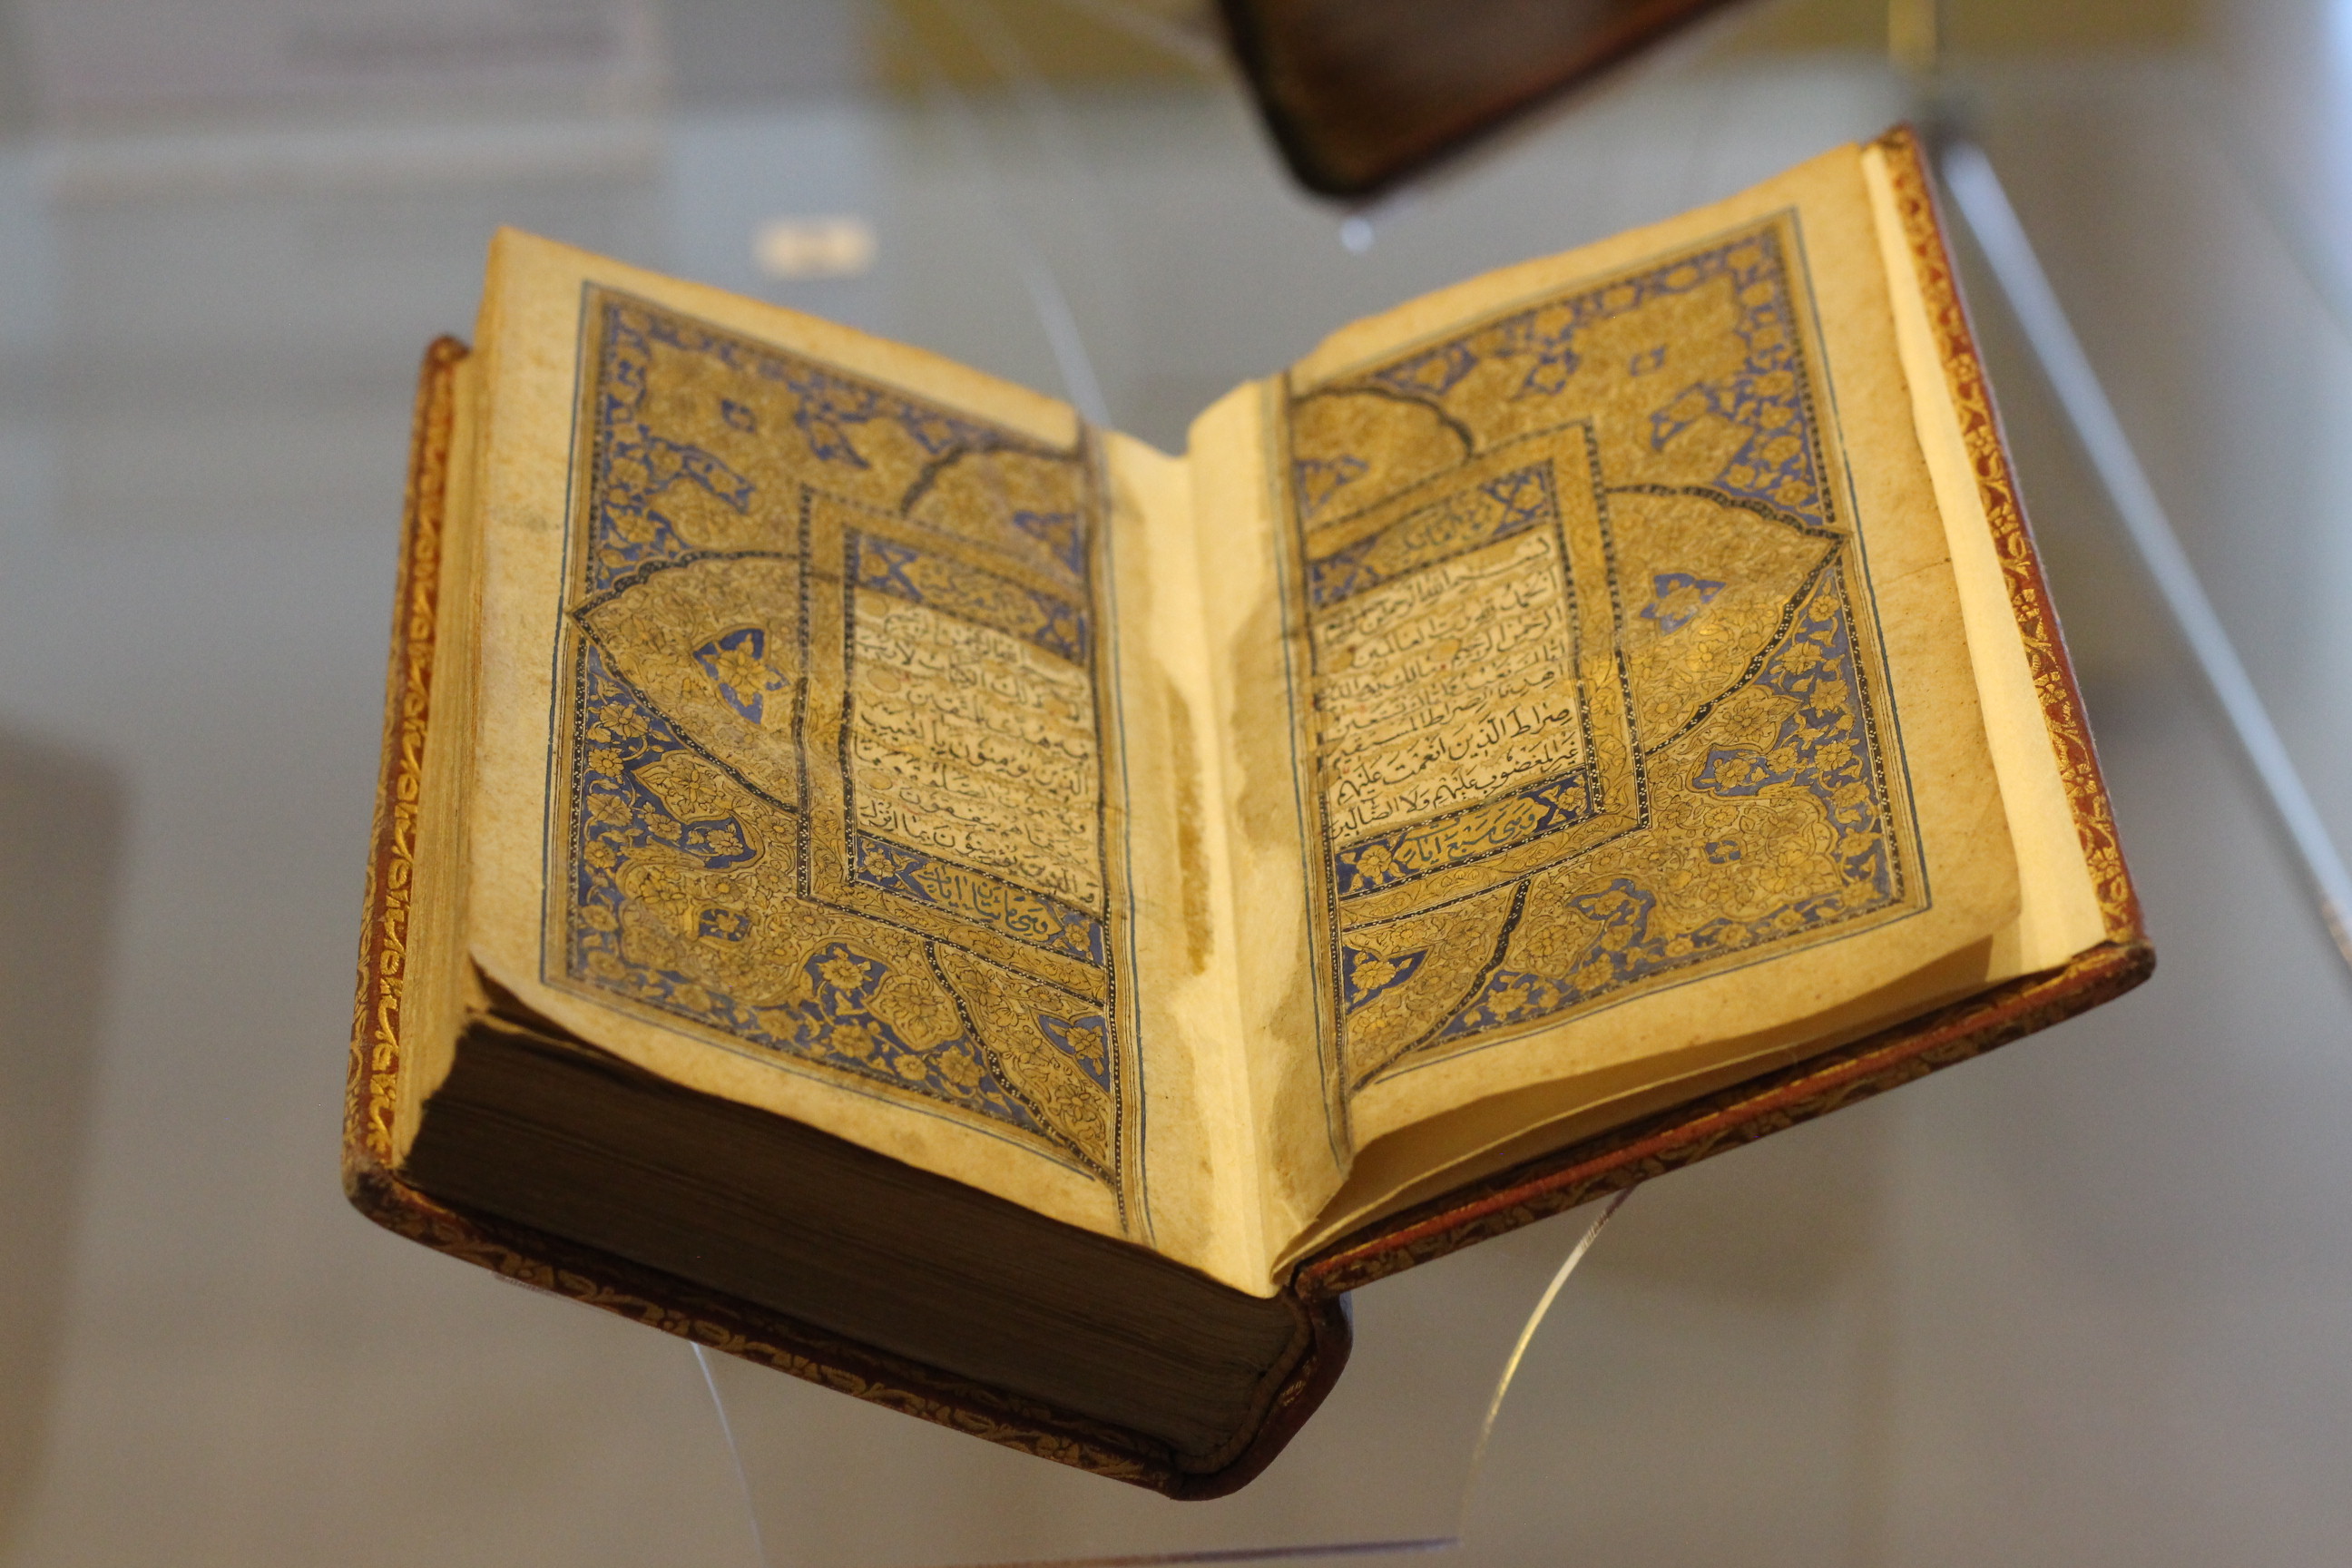 بسم الله الرحمن الرحيم
الحمد لله رب العالمين
الرحمن الرحيم مالك يوم الدين
اياك نعبد واياك نستعين
اهدنا الصراط المستقيم
صراط الذين انعمت عليهم
غير المغضوب عليهم ولا الضالين
وهي سبع ايات
بسم الله الرحمن الرحيم
الم ذلك الكتاب لا ريب
فيه هدى للمتقين
الذين يؤمنون بالغيب
ويقيمون الصلوة ومما
رزقناهم ينفقون
والذين يؤمنون بما انزل
وهي مائتان ايات